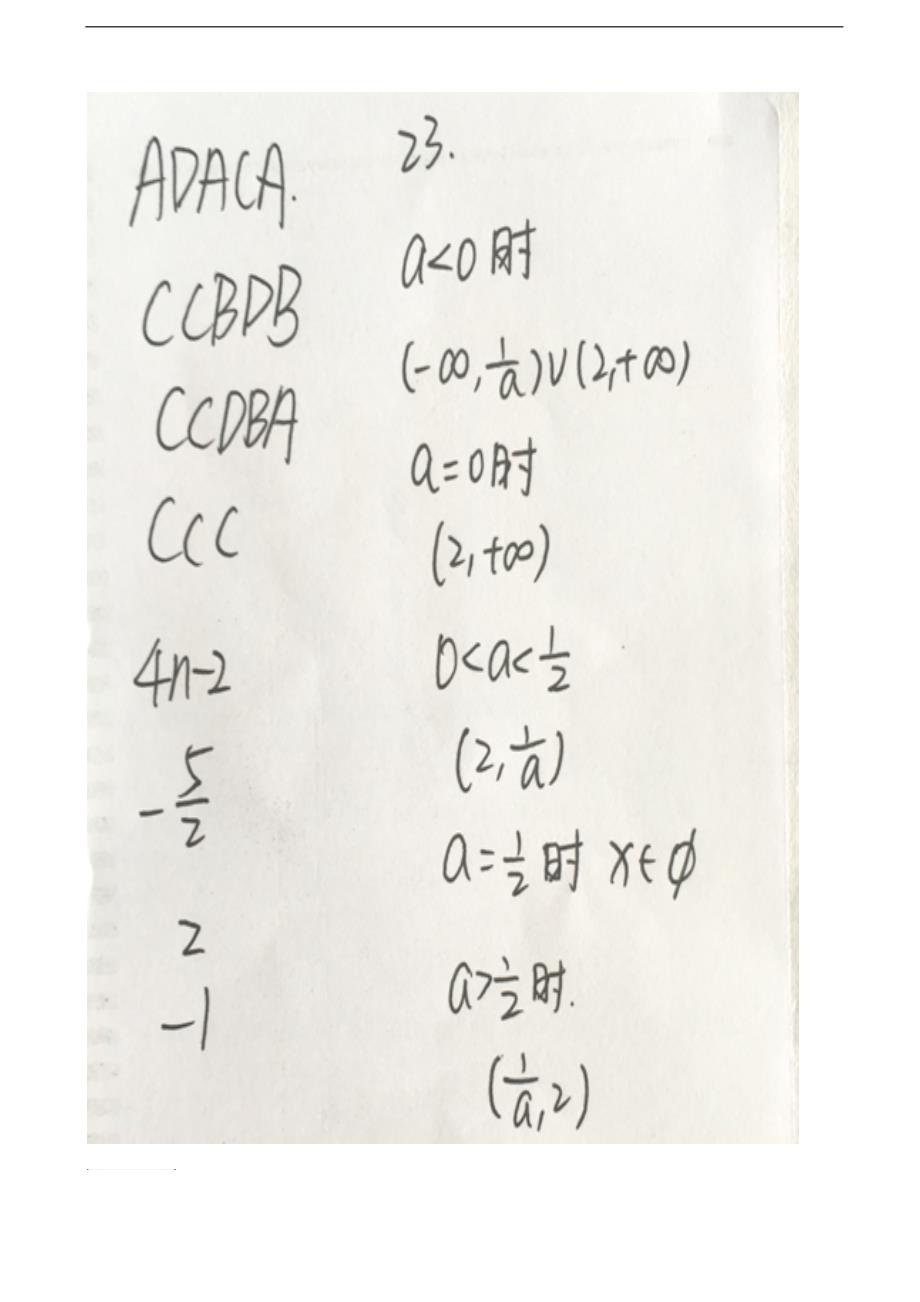 ADACA.
CCBDB
CCDBA
CCC
4n-2
-5/2
2
-1
23.
a<0时
(-∞,1/a)∪(2,+∞)
a=0时
(2,+∞)
0<a<1/2
(2,1/a)
a=1/2时 x∈ϕ
a>1/2时.
(1/a,2)